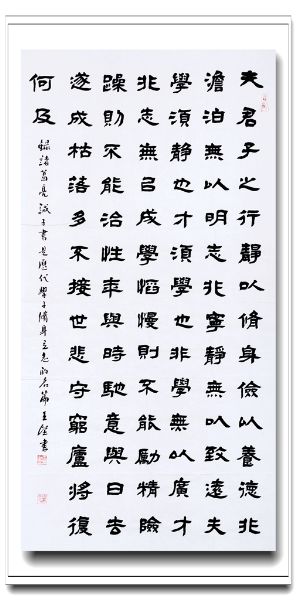 夫君子之行靜以脩身儉以養德非
澹泊無以明志非寧靜無以致遠夫
學須靜也才須學也非學無以廣才
非志無以成學慆慢則不能勵精險
躁則不能治性年與時馳意與日去
遂成枯落多不接世悲守窮廬將復
何及
録諸葛亮誡子書是歷代學子脩身立志的名篇 王書